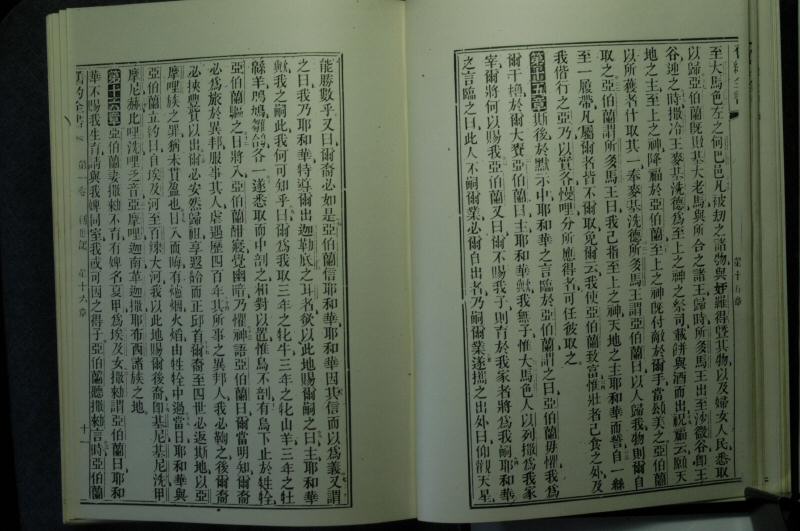 舊約全書
第十五章
至大馬色左之何巴邑凡被刧之諸物與姪羅得暨其物以及婦女人民悉取
以歸亞伯蘭旣敗其大老馬與所合之諸王歸時所多馬王出至沙微谷卽王
谷迎之時撒冷王麥基洗德爲至上之神之祭司載餅與酒而出祝嘏云願天
地之主至上之神降福於亞伯蘭至上之神旣付敵於爾手當頌美之亞伯蘭
以所獲者什取其一奉麥基洗德所多馬王謂亞伯蘭曰以人歸我物則爾自
取之亞伯蘭謂所多馬王曰我己指至上之神天地之主耶和華而誓自一絲
至一履帶凡屬爾者皆不爾取免爾云我使亞伯蘭致富惟壯者己食之外及
我偕行之亞乃以實各慢哩分所應得者可任彼取之
第十五章斯後於默示中耶和華之言臨於亞伯蘭謂之曰亞伯蘭毋懼我爲
爾干櫓於爾大賚亞伯蘭曰主耶和華歟我無子惟大馬色人以列撒爲我家
宰爾將何以賜我亞伯蘭又曰爾不賜我子則育於我家者將爲我嗣耶和華
之言臨之曰此人不嗣爾業必爾自出者乃嗣爾業遂攜之出外曰仰觀天星
能勝數乎又曰爾裔必如是亞伯蘭信耶和華因其信而以爲義又謂
之曰我乃耶和華特導爾出迦勒底之耳者欲以此地賜爾嗣之曰主耶和華
歟我之嗣此我何可知乎曰爾爲我取三年之牝牛三年之牝山羊三年之牡
緜羊鳲鳩雛鴿各一遂悉取而中剖之相對以置惟鳥不剖有鳥下止於牲牷
亞伯蘭驅之日將入亞伯蘭酣寢覺幽暗乃懼神語亞伯蘭曰爾當明知爾裔
必爲旅於異邦服事其人虐遇歷四百年其所事之異邦人我必鞫之後爾裔
必挾豐貲以出爾必安然歸祖享遐齡而正邱首爾裔至四世必返斯地以亞
摩哩族之罪病未貫盈也日入而晦有爐烟火焰由牲牷中過當日耶和華與
亞伯蘭立約曰自埃及河至百辣大河我以此地賜爾後裔卽基尼基尼洗甲
摩尼赫比哩洗哩乏音亞摩哩迦南革迦撒耶布西諸族之地
第十六章亞伯蘭妻撒𤊹不育有婢名夏甲爲埃及女撒𤊹謂亞伯蘭曰耶和
華不賜我生育請與我婢同室我或可因之得子亞伯蘭聽撒𤊹言時亞伯蘭
舊約全書
第一卷
創世記
第十六章
十一